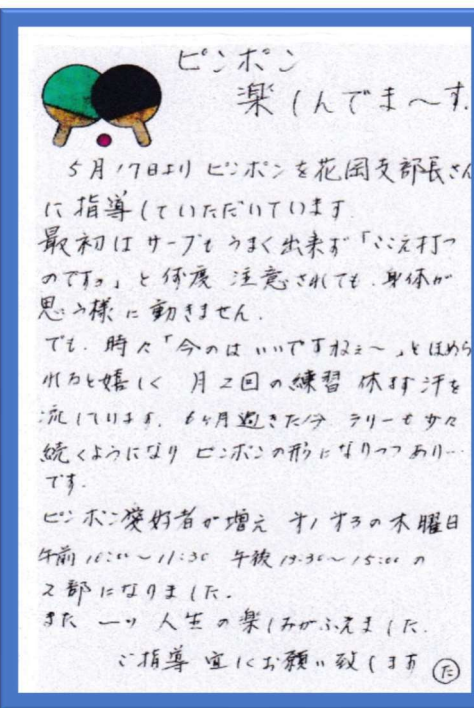 ピンポン
楽しんでま〜す.
5月17日より ピンポンを花岡支部長さん
に指導していただいています.
最初は サーブも うまく出来ず「ここえ打つ
のですョ」と 何度 注意されても、身体が
思う様に動きません.
でも、時々「今のは いいですねぇ〜」とほめら
れると嬉しく 月2回の練習 休まず汗を
流しています. 6ヶ月過ぎた今 ラリーも少々
続くようになり ピンポンの形になりつつあり…
です.
ピンポン愛好者が増え 才1 才3の木曜日
午前10:00〜11:30 午後13:30〜15:00の
2部になりました.
また 一ッ 人生の楽しみがふえました.
ご指導 宜しくお願い致します た